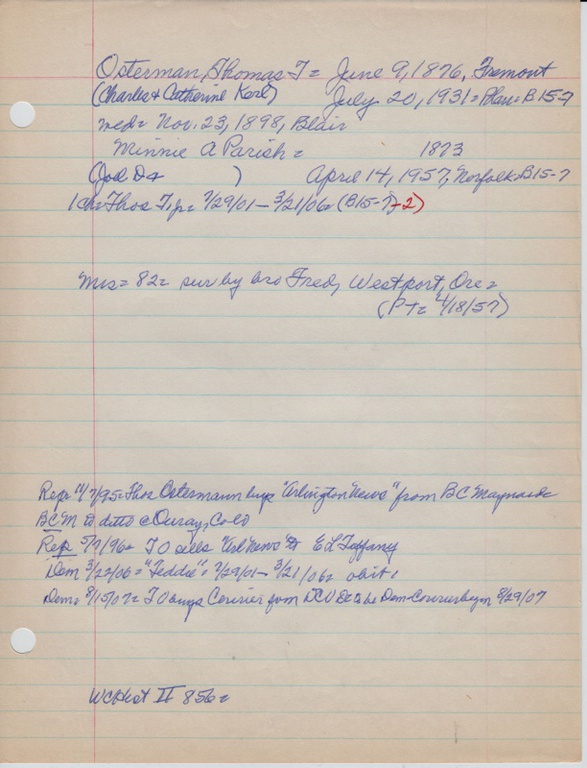 Osterman, Thomas T= June 9, 1876, Fremont
(Charles & Catherine Kerl) July 20, 1931= Blair= B15-7
med= Nov. 23, 1898, Blair
Minnie A Parish= 1873
(Joel D& ) April 14, 1957, Norfolk= B15-7
1 ch= Thos T, jr= 7/29/01 - 3/21/06= (B15-7)-2)
Mrs= 82= sur by bro Fred, Westport, Ore=
(PT= 4/18/57)
Rep= 11/7/95= Thos Ostermann buys "Arlington News" from BC Maynard=
BCM to ditto @ Ouray, Colo
Rep 5/7/96= TO sells "Arl News" to EL Tiffany
Dem 3/22/06= "Teddie"= 7/29/01 - 3/21/06= obit=
Dem= 8/15/07= TO buys Courier from to be Dem-Courier begin 8/29/07
WCHist II 856=